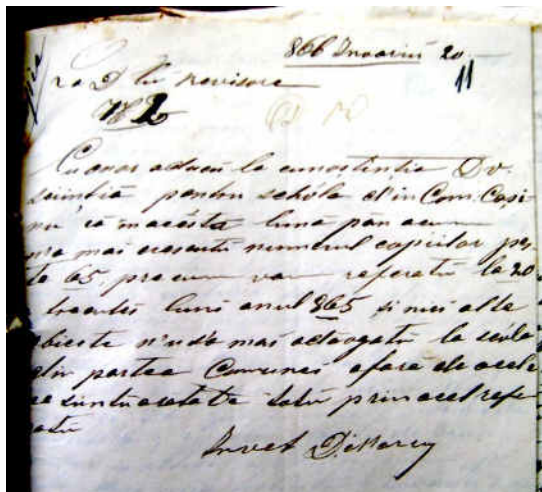 866 Ianuariu 20
11
D lu Revisore
N 2
Cu onor aducu la cunostintia Dv.
sciintia pentru schóla d'in Com: Casi
nu' ca in acésta luna pân acum
mai crescutu numerul copiilor pes
te 65. precum v'am referatu la 20
trecutei luni anul 865 si nici alte
obiecte n'u s'a mai adaogatu la scóla
din partea Comunei afara de acele
aretate totu prin acel refe
ratu
Invet